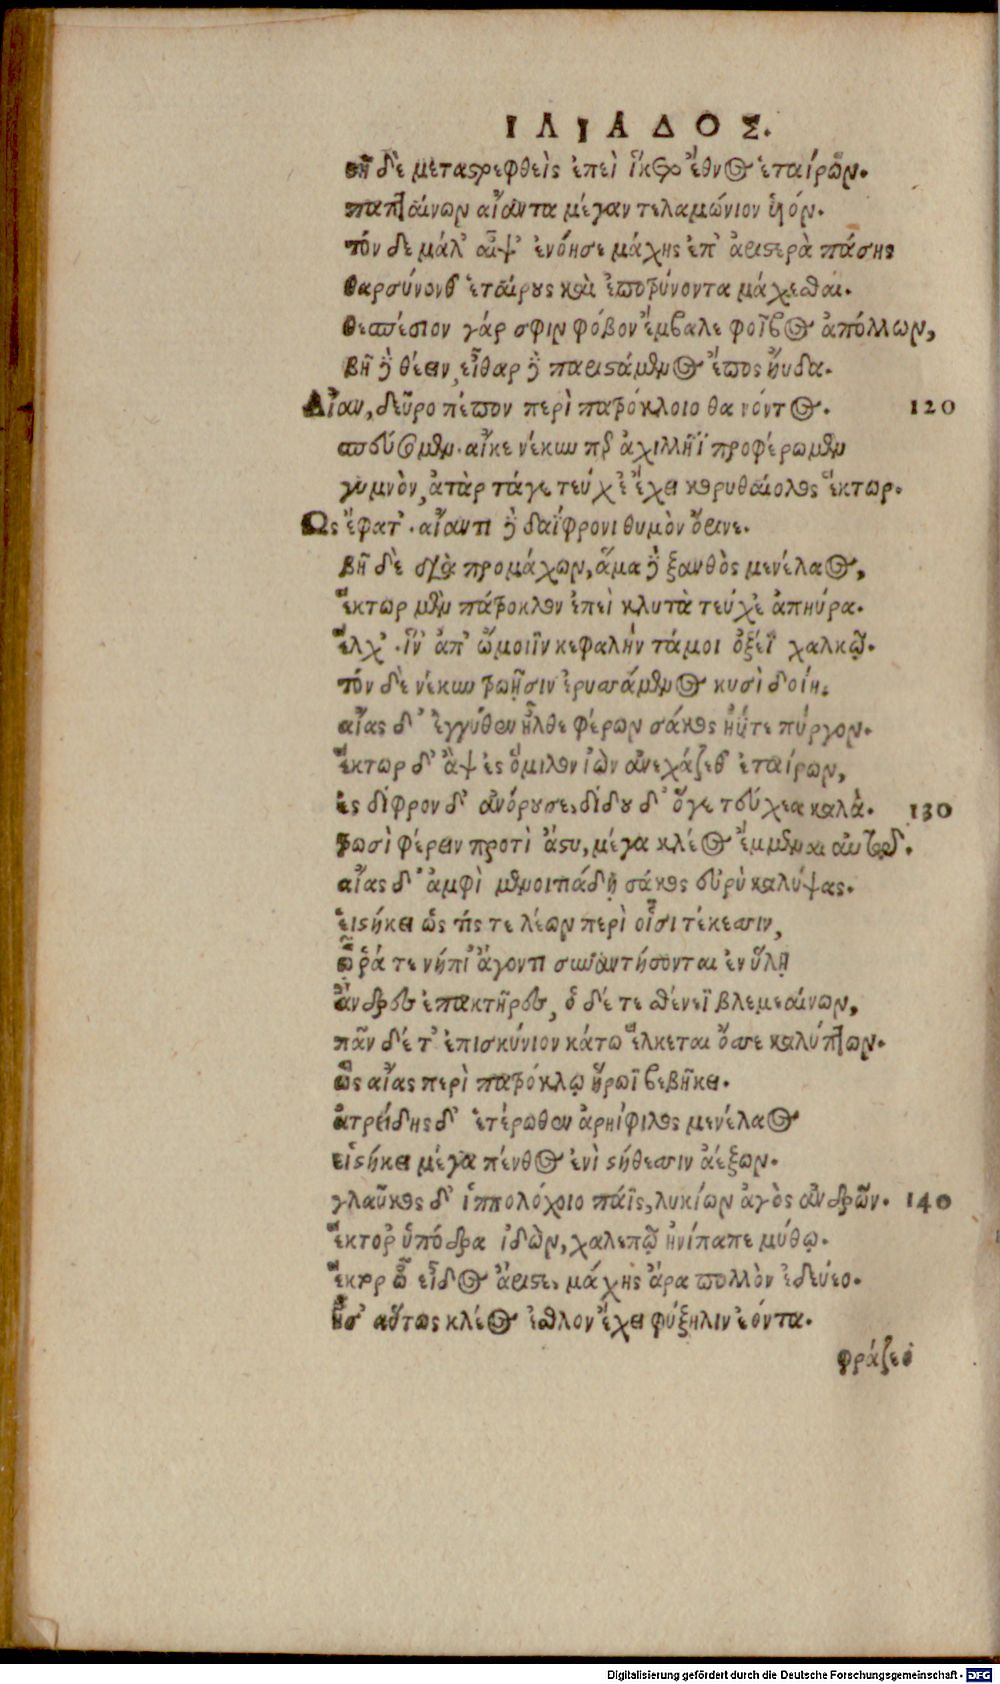 ΙΛΙΑΔΟΣ.
στῆ δὲ μεταστρεφθεὶς ἐπεὶ ἵκετο ἔθνος ἑταίρων.
παπταίνων αἴαντα μέγαν τελαμώνιον υἱόν.
τὸν δὲ μάλ' αἶψ' ἐνόησε μάχης ἐπ' ἀριστερὰ πάσης
θαρσύνονθ' ἑτάρους καὶ ἐποτρύνοντα μάχεσθαι.
θεσπέσιον γάρ σφιν φόβον ἔμβαλε φοῖβος ἀπόλλων,
βῆ δὲ θέειν, εἶθαρ δὲ παριστάμενος ἔπος ηὔδα.
Αἶαν, δεῦρο πέπον περὶ πατρόκλοιο θανόντος. 120
σπεύσομεν. αἴκε νέκυν περ ἀχιλλῆϊ προφέρωμεν
γυμνὸν, ἀτὰρ τάγε τεύχε' ἔχει κορυθαίολος ἕκτωρ.
Ὣς ἔφατ'. αἴαντι δὲ δαΐφρονι θυμὸν ὄρινε.
βῆ δὲ διὰ προμάχων, ἅμα δὲ ξανθὸς μενέλαος,
ἕκτωρ μὲν πάτροκλον ἐπεὶ κλυτὰ τεύχε' ἀπηύρα.
ἕλχ'. ἵν' ἀπ' ὤμοιϊν κεφαλὴν τάμοι ὀξέϊ χαλκῷ.
τὸν δὲ νέκυν τρωῇσιν ἐρυσσάμενος κυσὶ δοίη.
αἴας δ' ἐγγύθεν ἦλθε φέρων σάκος ἠΰτε πύργον.
ἕκτωρ δ' ἂψ ἐς ὅμιλον ἰὼν ἀνεχάζεθ' ἑταίρων,
ἐς δίφρον δ' ἀνόρουσε, δίδου δ' ὅγε τεύχεα καλὰ. 130
τρωσὶ φέρειν προτὶ ἄστυ, μέγα κλέος ἔμμεναι αὐτῷ.
αἴας δ' ἀμφὶ μενοιτιάδῃ σάκος εὐρὺ καλύψας.
εἱστήκει ὥς τίς τε λέων περὶ οἷσι τέκεσσιν,
ᾧ ῥά τε νήπι' ἄγοντι συναντήσονται ἐν ὕλῃ
ἄνδρες ἐπακτῆρες, ὁ δέ τε σθένεϊ βλεμεαίνων,
πᾶν δέ τ' ἐπισκύνιον κάτω ἕλκεται ὄσσε καλύπτων.
ὣς αἴας περὶ πατρόκλῳ ἥρωϊ βεβήκει.
ἀτρείδης δ' ἑτέρωθεν ἀρηίφιλος μενέλαος
εἱστήκει μέγα πένθος ἐνὶ στήθεσσιν ἀέξων.
γλαῦκος δ' ἱππολόχοιο πάϊς, λυκίων ἀγὸς ἀνδρῶν. 140
ἕκτορ' ὑπόδρα ἰδὼν, χαλεπῷ ἠνίπαπε μύθῳ.
ἕκτορ ὦ εἶδος ἄριστε, μάχης ἄρα πολλὸν ἐδεύεο.
ἦ σ' αὔτως κλέος ἐσθλον ἔχει φύξηλιν ἐόντα.
φράζεο
Digitalisierung gefördert durch die Deutsche Forschungsgemeinschaft - DFG